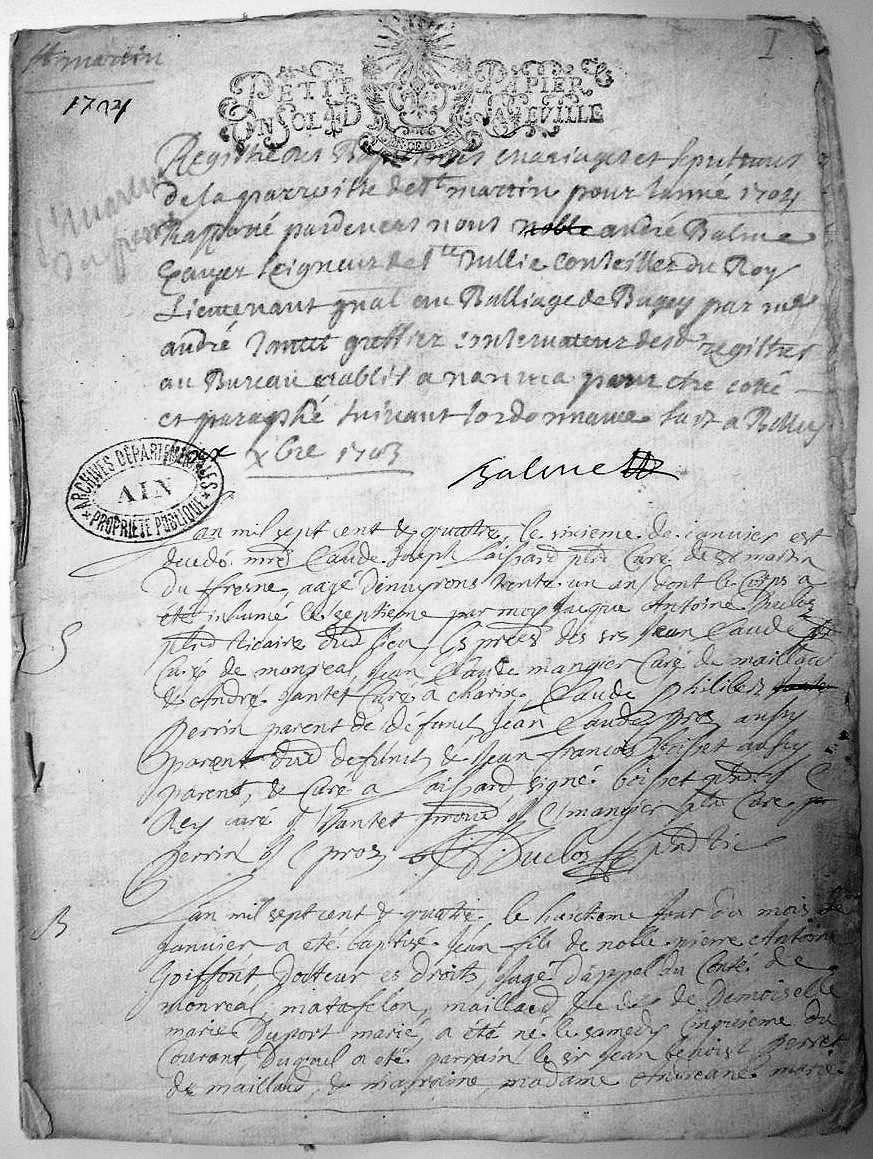 St martin
1704
I
PETIT PAPIER
UN SOL 4 D LA FEVILLE
Registre des Baptesmes mariages et sepultures
de la parroisse de St martin pour lanné 1704
Rapporté pardevers nous noble andré Balme
Seigneur de Ste Jullie Conseiller du Roy
Lieutenant gnal au Balliage de Bugey par me
andré Jantet greffier conservateur desd registres
au Bureau establit a nantua pour etre cotté
et paraphé suivant lordonnance fait a Belley
xbre 1703
Balme
ARCHIVES DÉPARTEMENTALES
AIN
PROPRIÉTÉ PUBLIQUE
S
Lan mil sept cent & quatre, le sixieme de ianvier est
decedé mre Claude Joseph pbre Curé de St martin
du fresne, aagé d'environs trente un an, dont le Corps a
été inhumé le septieme par moy Jacque Antoine Duclos
pbre vicaire dud lieu és prés des srs Jean Claude
Curé de monreal, Jean Claude mangier Curé de maillac
& André Jantet Curé a charix, Claude philibert
perrin parent de défunct Jean Claude proz aussy
parent dud defunct & Jean francois boisset aussy
parent, & Curé a signé boisset
Rey curé Jantet C mangier pbre Curé
perrin C proz Duclos
B
Lan mil sept cent & quatre le huictieme Jour du mois de
Janvier a été baptisé Jean fils de noble pierre Antoine
Goiffont Docteur es droits, Juge d'appel du Conté de
monreal, matafelon, maillac, & de Demoiselle
marie Duport marié, a été né le samedy cinquieme du
Courant Duquel a été parrain le sr Jean benoist perret
de maillac, & marraine, madame marie